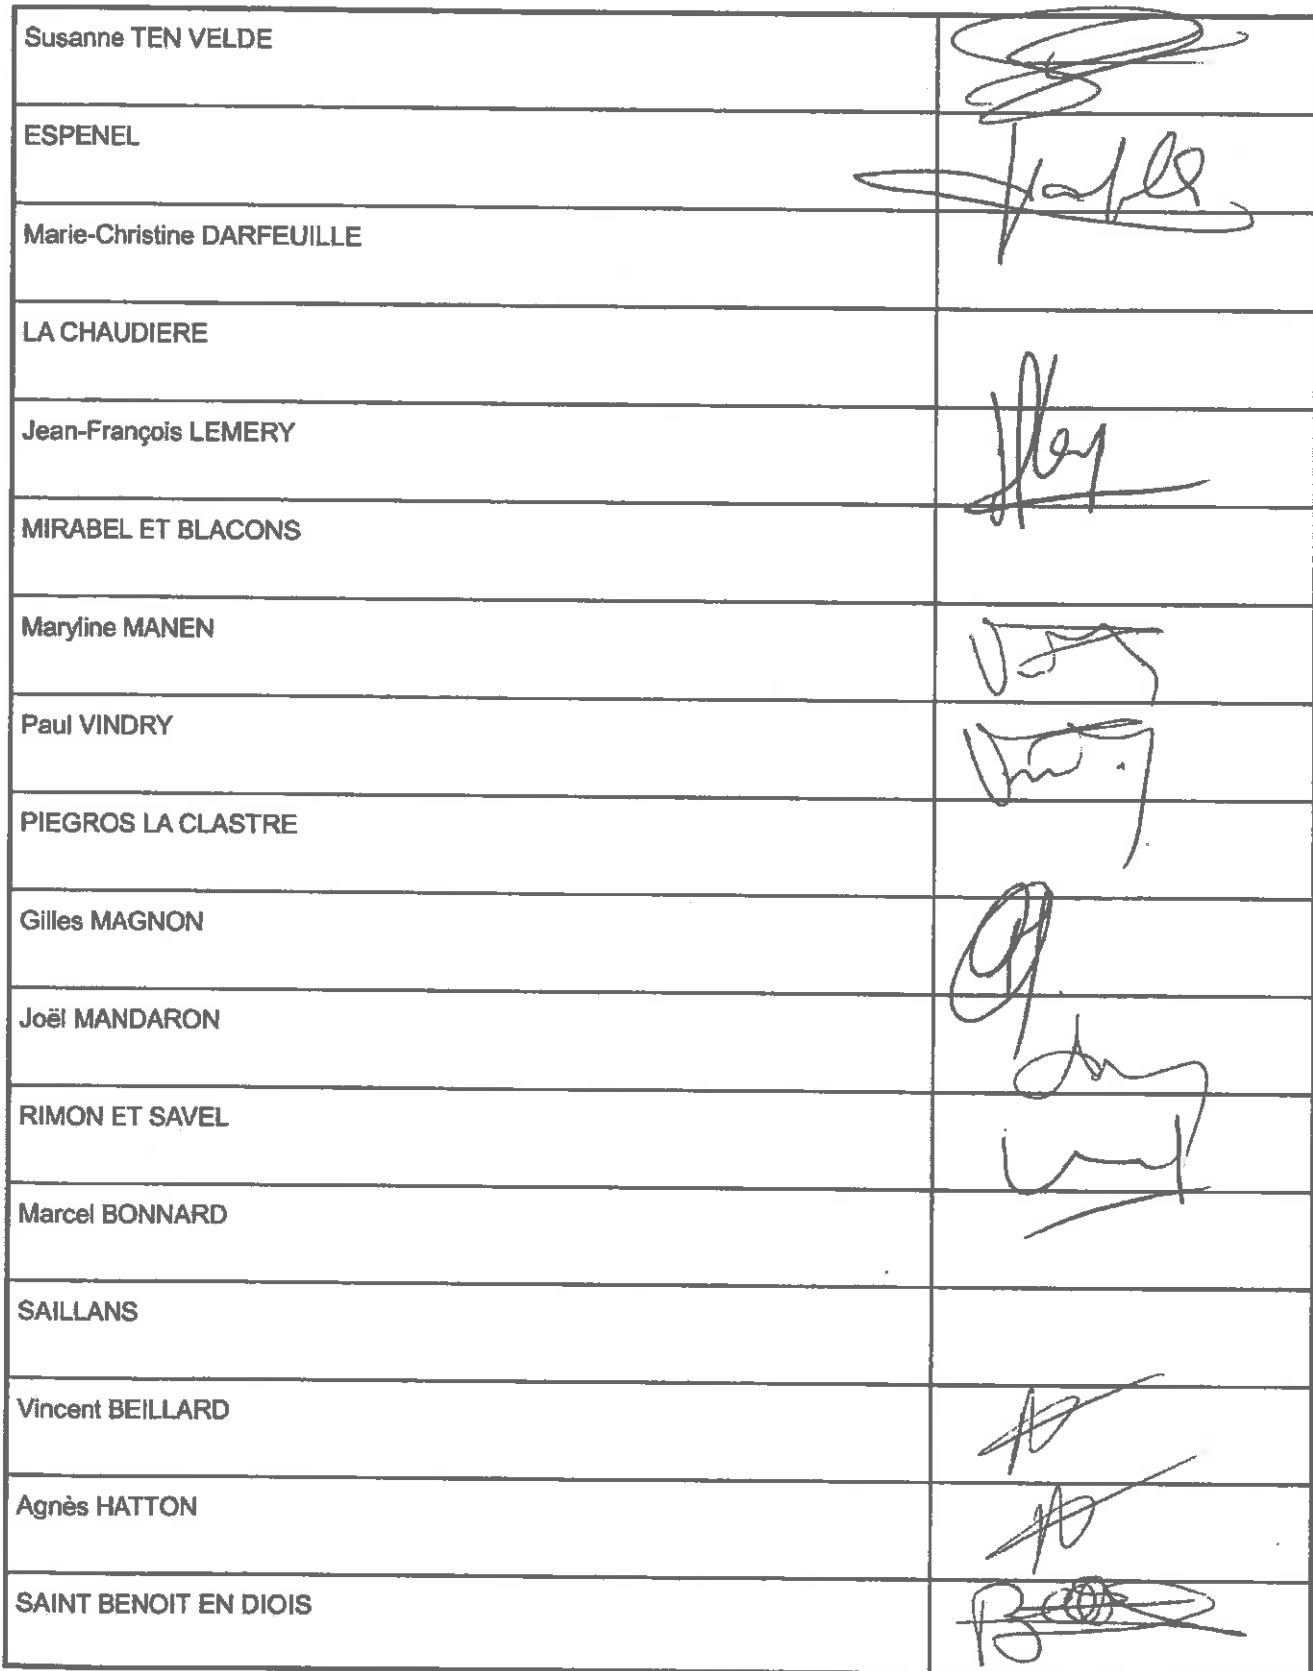 Susanne TEN VELDE
ESPENEL
Marie-Christine DARFEUILLE
LA CHAUDIERE
Jean-François LEMERY
MIRABEL ET BLACONS
Maryline MANEN
Paul VINDRY
PIEGROS LA CLASTRE
Gilles MAGNON
Joël MANDARON
RIMON ET SAVEL
Marcel BONNARD
SAILLANS
Vincent BEILLARD
Agnès HATTON
SAINT BENOIT EN DIOIS